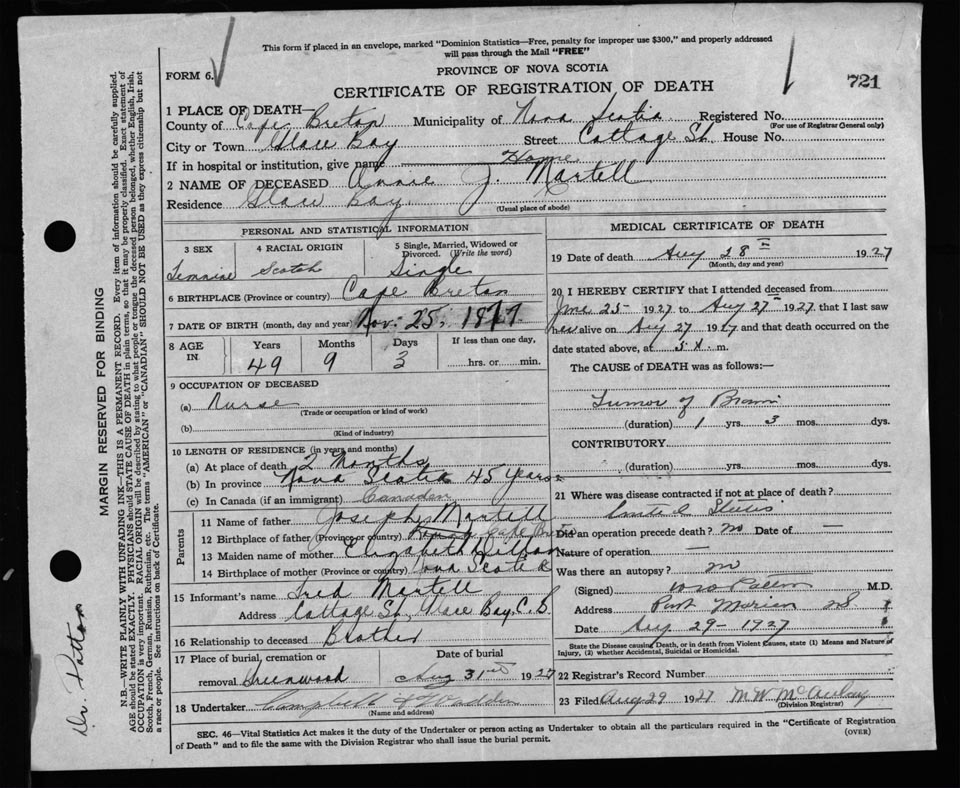 This form if placed in an envelope, marked "Dominion Statistics—Free, penalty for improper use $300," and properly addressed
will pass through the Mail "FREE"
FORM 6.
PROVINCE OF NOVA SCOTIA
CERTIFICATE OF REGISTRATION OF DEATH
721
1 PLACE OF DEATH—
County of Cape Breton Municipality of Nova Scotia Registered No.
(For use of Registrar General only)
City or Town Glace Bay Street Cottage St. House No.
If in hospital or institution, give name Home
2 NAME OF DECEASED Annie J. Martell
Residence Glace Bay
(Usual place of abode)
PERSONAL AND STATISTICAL INFORMATION
3 SEX 4 RACIAL ORIGIN 5 Single, Married, Widowed or Divorced. (Write the word)
Scotch Single
6 BIRTHPLACE (Province or country) Cape Breton
7 DATE OF BIRTH (month, day and year) Nov. 25, 1877
8 AGE IN Years Months Days If less than one day,
49 9 3 hrs. or min.
9 OCCUPATION OF DECEASED
(a) Nurse
(Trade or occupation or kind of work)
(b)
(Kind of industry)
10 LENGTH OF RESIDENCE (in years and months)
(a) At place of death 2 Months
(b) In province Nova Scotia 45 years
(c) In Canada (if an immigrant)
Parents
11 Name of father Joseph Martell
12 Birthplace of father (Province or country) Cape
13 Maiden name of mother Elizabeth
14 Birthplace of mother (Province or country) Nova Scotia
15 Informant's name Fred Martell
Address Cottage St, Glace Bay, C.B.
16 Relationship to deceased Brother
17 Place of burial, cremation or Date of burial
removal Greenwood Aug 31 1927
18 Undertaker Campbell
(Name and address)
MEDICAL CERTIFICATE OF DEATH
19 Date of death Aug 28 1927
(Month, day and year)
20 I HEREBY CERTIFY that I attended deceased from
June 25 1927 to Aug 27 1927 that I last saw
her alive on Aug 27 1927 and that death occurred on the
date stated above, at 5 m.
The CAUSE of DEATH was as follows:—
Tumor of
(duration) 1 yrs. 3 mos. dys.
CONTRIBUTORY
(duration) yrs. mos. dys.
21 Where was disease contracted if not at place of death?
United States
Did an operation precede death? no Date of —
Nature of operation —
Was there an autopsy? no
(Signed) Patton M.D.
Address Port Morien NS
Date Aug 29 - 1927
State the Disease causing Death, or in death from Violent Causes, state (1) Means and Nature of
Injury, (2) whether Accidental, Suicidal or Homicidal.
22 Registrar's Record Number
23 Filed Aug 29 1927 M W
(Division Registrar)
SEC. 46—Vital Statistics Act makes it the duty of the Undertaker or person acting as Undertaker to obtain all the particulars required in the "Certificate of Registration
of Death" and to file the same with the Division Registrar who shall issue the burial permit.
(OVER)
MARGIN RESERVED FOR BINDING
N.B.—WRITE PLAINLY WITH UNFADING INK—THIS IS A PERMANENT RECORD. Every item of information should be carefully supplied.
AGE should be stated EXACTLY. PHYSICIANS should STATE CAUSE OF DEATH in plain terms, so that it may be properly classified. Exact statement of
OCCUPATION is very important. RACIAL ORIGIN will be described by stating to what people or tongue the deceased person belonged, whether English, Irish,
Scotch, French, German, Russian, Ruthenian, etc. The terms "AMERICAN" or "CANADIAN" SHOULD NOT BE USED as they express citizenship but not
a race or people. See instructions on back of Certificate.
Dr. Patton